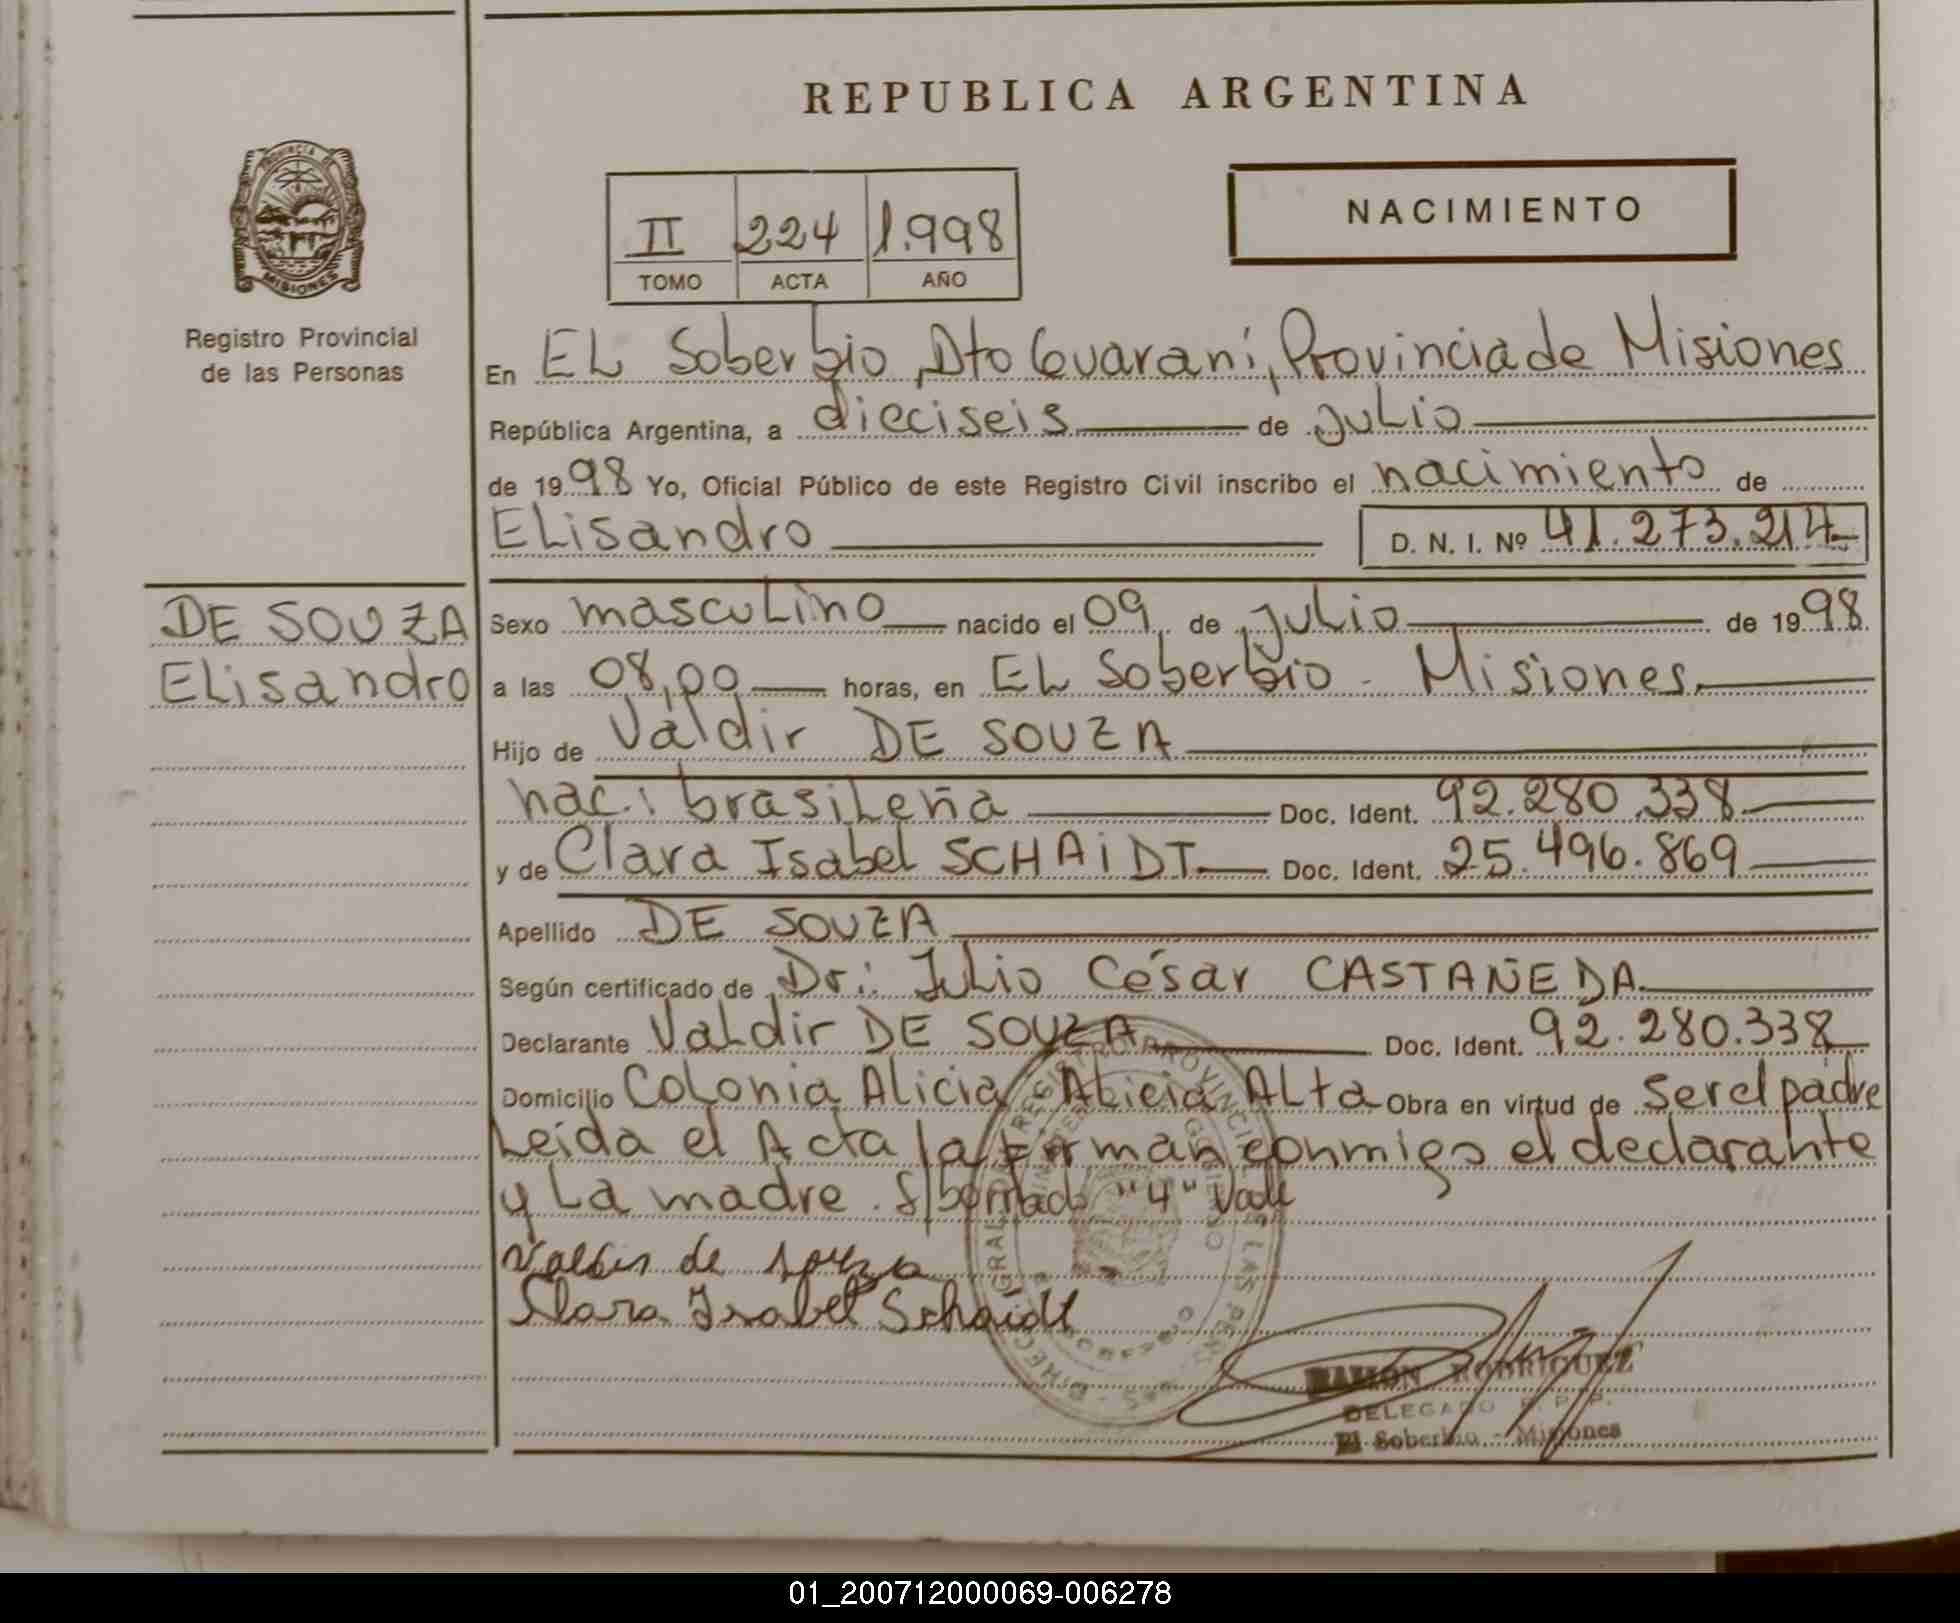 REPUBLICA ARGENTINA
PROVINCIA DE
MISIONES
Registro Provincial
de las Personas
II 224 1.998
TOMO ACTA AÑO
NACIMIENTO
En EL Soberbio, Dto Guaraní, Provincia de Misiones
República Argentina, a dieciseis de julio
de 1998 Yo, Oficial Público de este Registro Civil inscribo el nacimiento de
ELisandro D. N. I. Nº 41.273.214
DE SOUZA
ELisandro
Sexo mascuLino nacido el 09 de juLio de 1998
a las 08,00 horas, en EL Soberbio - Misiones.
Hijo de Valdir DE SOUZA
nac.: brasiLeña Doc. Ident. 92.280.338
y de Clara Isabel SCHAiDT Doc. Ident. 25.496.869
Apellido DE SOUZA
Según certificado de Dr.: Julio César CASTAÑEDA.
Declarante VaLdir DE SOUZA Doc. Ident. 92.280.338
Domicilio CoLonia Alicia Alicia ALta Obra en virtud de ser el padre
Leida el Acta la firman conmigo el declarante
y La madre. S/borrado "4" Vale
Valdir de souza
Clara Isabel Schaidt
REGISTRO PROVINCIAL DE LAS PERSONAS
RAMON RODRIGUEZ
DELEGADO R. P. P.
El Soberbio - Misiones
01_200712000069-006278